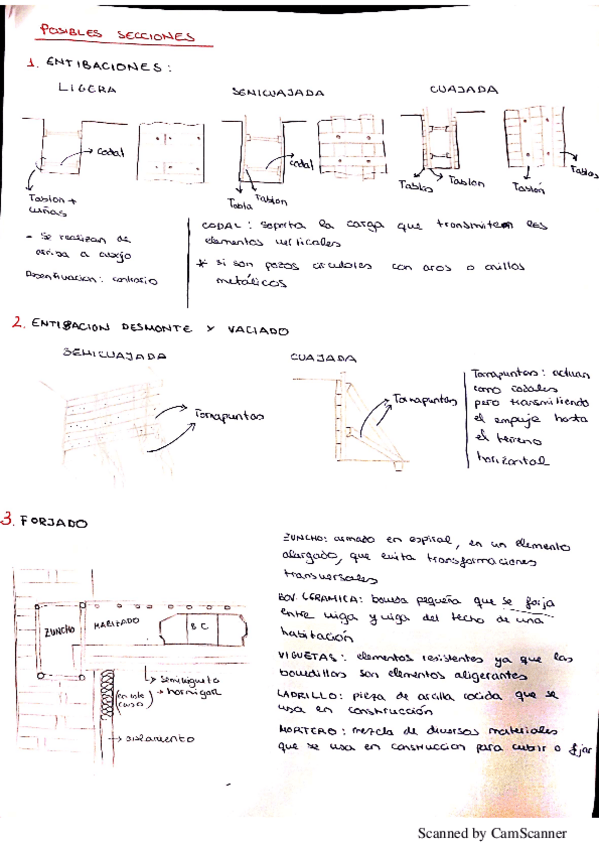 POSIBLES SECCIONES
1. ENTIBACIONES:
LIGERA
SEMICUAJADA
CUAJADA
codal
codal
Tablon +
cuñas
Tabla
Tablon
Tablas
Tablon
Tablón
Tablas
- Se realizan de
arriba a abajo
Desentibacion: contrario
CODAL: soporta la carga que transmiten los
elementos verticales
* si son pozos circulares con aros o anillos
metálicos
2. ENTIBACION DESMONTE Y VACIADO
SEMICUAJADA
CUAJADA
Tornapuntas
Tornapuntas
Tornapuntas: actuan
como codales
pero transmitiendo
el empuje hasta
el terreno
horizontal
3. FORJADO
ZUNCHO
MACIZADO
B C
semivigueta
(en este
caso)
hormigon
aislamiento
ZUNCHO: armado en espiral, en un elemento
alargado, que evita transformaciones
transversales
BOV. CERAMICA: boveda pequeña que se forja
entre viga y viga del techo de una
habitación
VIGUETAS: elementos resistentes ya que las
bovedillas son elementos aligerantes
LADRILLO: pieza de arcilla cocida que se
usa en construcción
MORTERO: mezcla de diversos materiales
que se usa en construccion para cubrir o fijar
Scanned by CamScanner